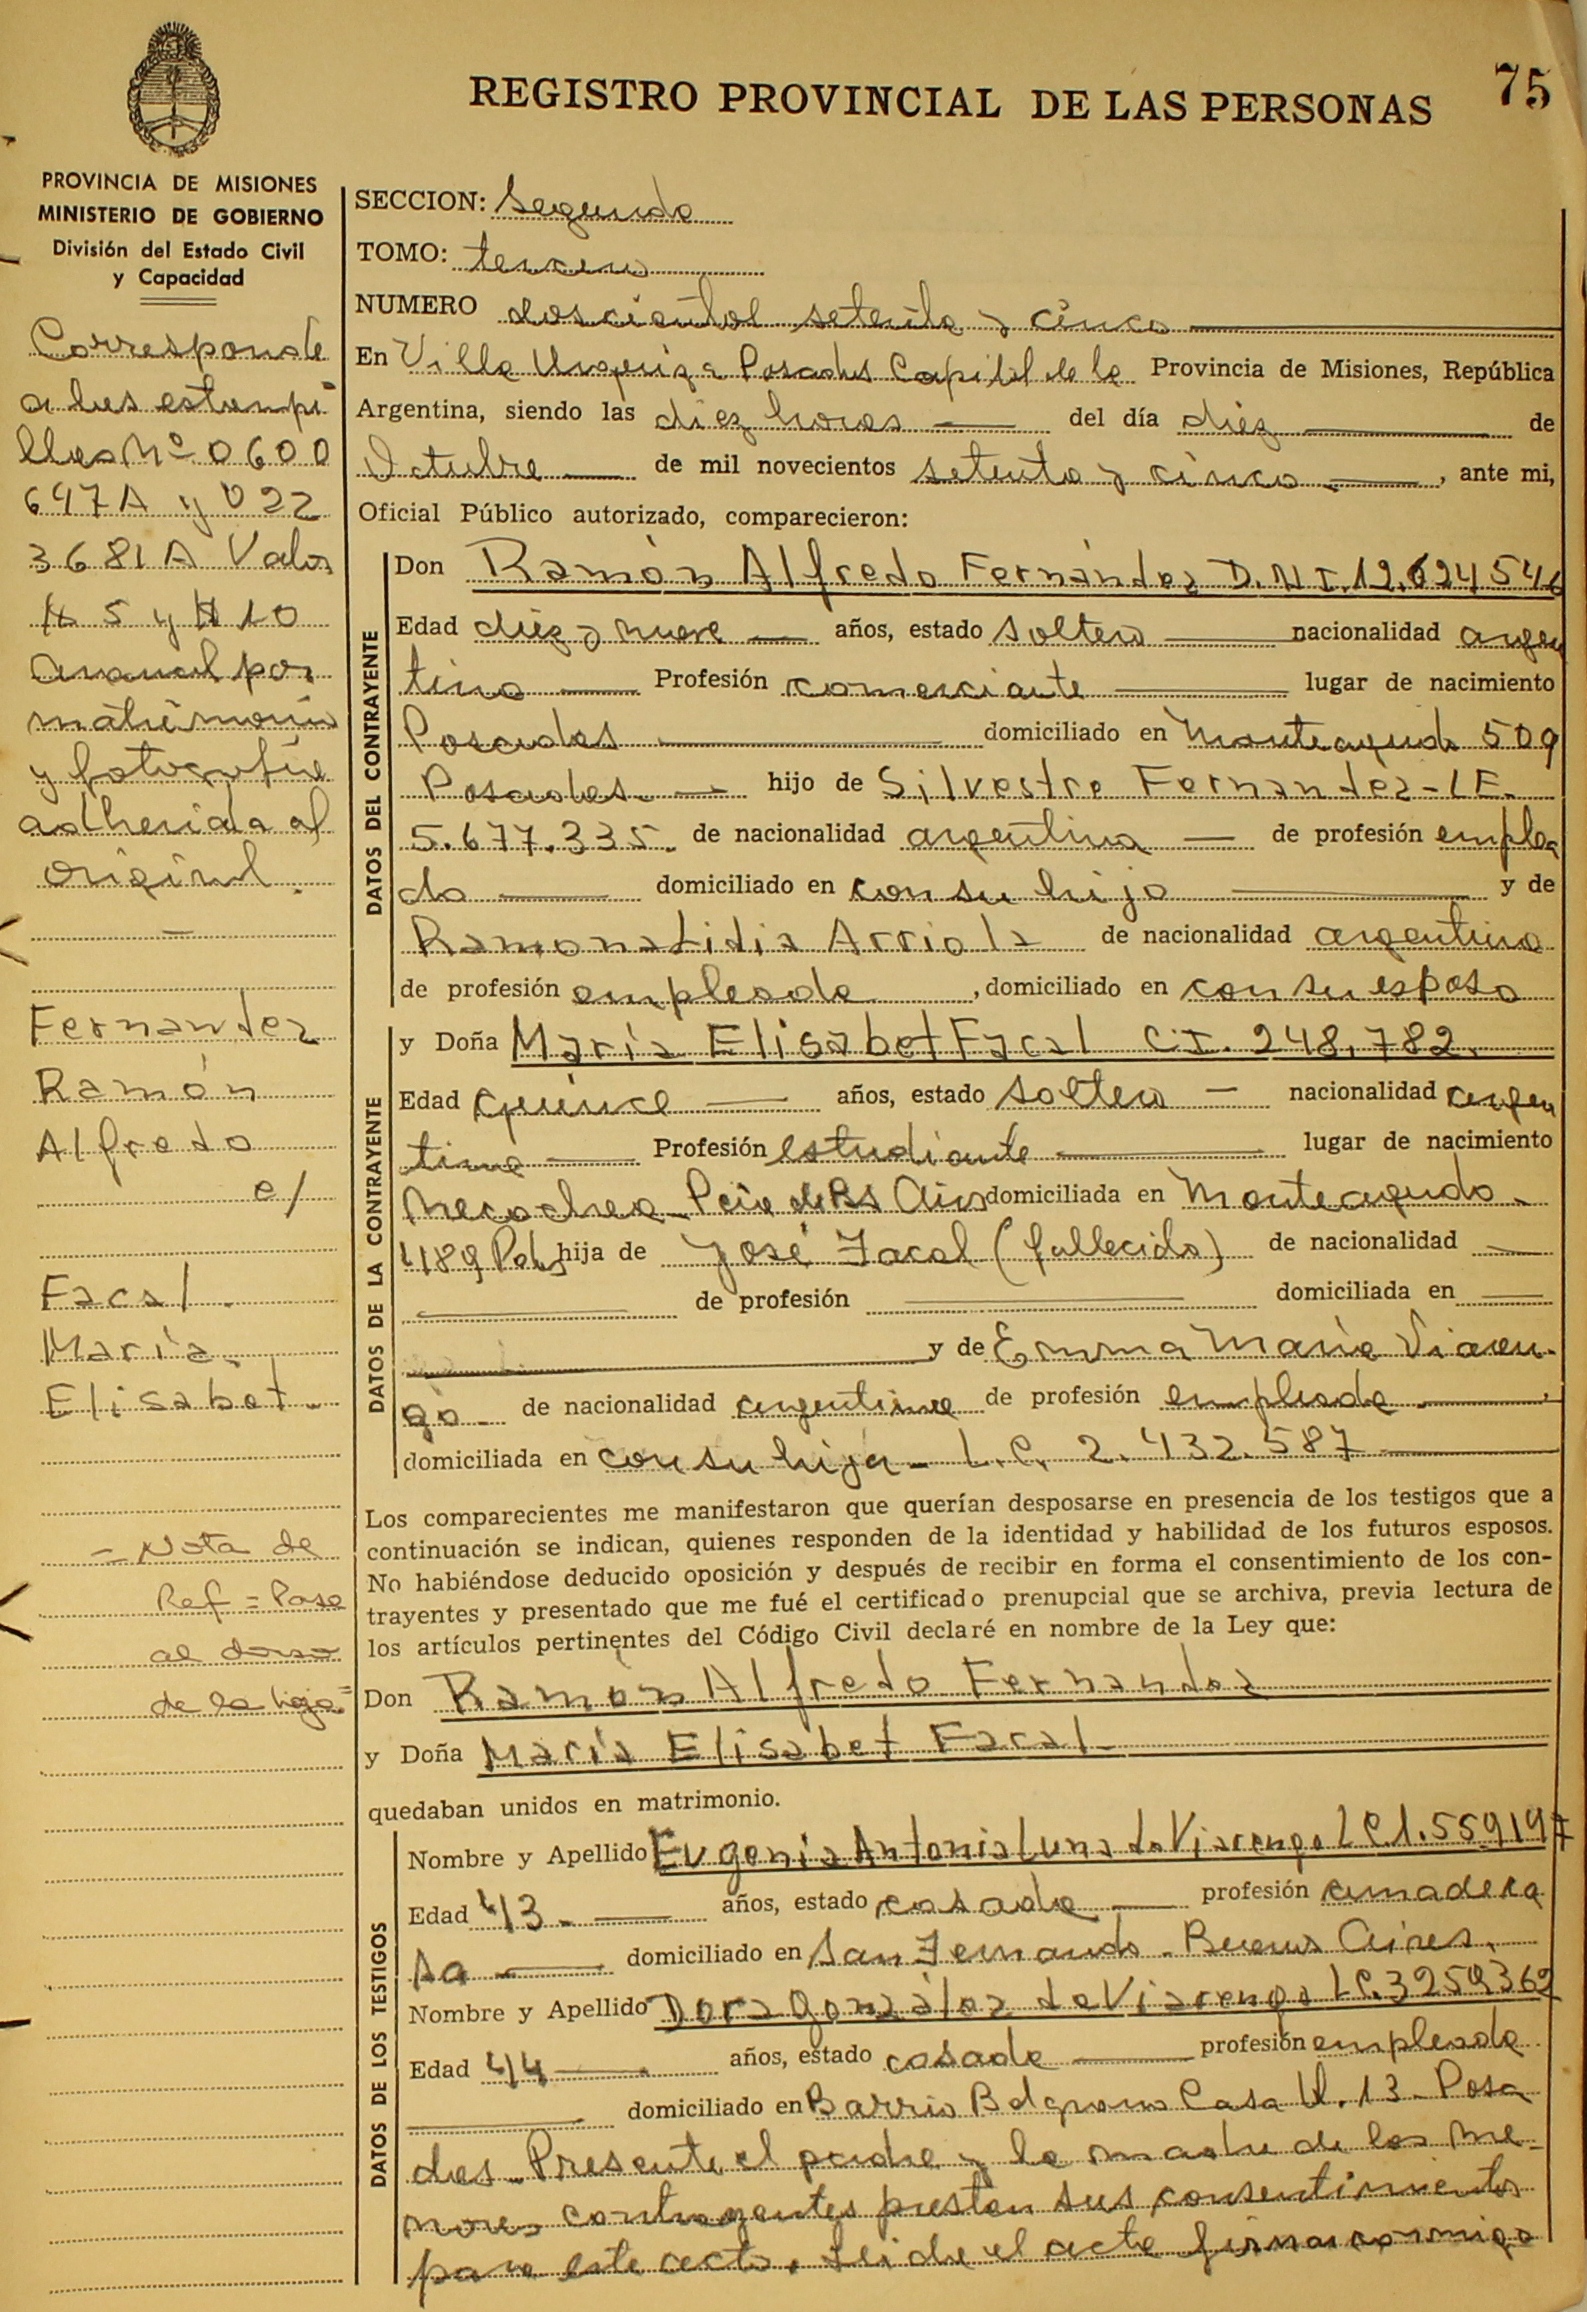 REGISTRO PROVINCIAL DE LAS PERSONAS
75
PROVINCIA DE MISIONES
MINISTERIO DE GOBIERNO
División del Estado Civil
y Capacidad
Corresponde
a las estampi
llas Nº 0600
647A y 022
3681 A Valor
$ 5 y $ 10
Arancel por
matrimonio
y fotografía
adherida al
original.
Fernandez
Ramón
Alfredo
c/
Facal.
María
Elisabet.
- Nota de
Ref = Pase
al dorso
de la hoja =
SECCION: Segunda
TOMO: tercero
NUMERO doscientos setenta y cinco
En Villa Urquiza Posadas Capital de la Provincia de Misiones, República
Argentina, siendo las diez horas del día diez de
Octubre de mil novecientos setenta y cinco, ante mi,
Oficial Público autorizado, comparecieron:
DATOS DEL CONTRAYENTE
Don Ramón Alfredo Fernández D.N.I. 12.624546
Edad diez y nueve años, estado soltero nacionalidad argen
tina Profesión comerciante lugar de nacimiento
Posadas domiciliado en Monteagudo 509
Posadas. hijo de Silvestre Fernandez - LE.
5.677.335. de nacionalidad argentina de profesión emplea
do domiciliado en con su hijo y de
Ramona Lidia Arriola de nacionalidad argentina
de profesión empleada, domiciliado en con su esposo
DATOS DE LA CONTRAYENTE
y Doña María Elisabet Facal C.I. 248.782.
Edad quince años, estado soltera nacionalidad argen
tina Profesión estudiante lugar de nacimiento
Necochea - Pcia de Bs Aires domiciliada en Monteagudo -
489 Pdas hija de José Facal (fallecido) de nacionalidad
de profesión domiciliada en
y de Emma María Viaren-
go - de nacionalidad argentina de profesión empleada
domiciliada en con su hija - L.C. 2.432.587
Los comparecientes me manifestaron que querían desposarse en presencia de los testigos que a
continuación se indican, quienes responden de la identidad y habilidad de los futuros esposos.
No habiéndose deducido oposición y después de recibir en forma el consentimiento de los con-
trayentes y presentado que me fué el certificado prenupcial que se archiva, previa lectura de
los artículos pertinentes del Código Civil declaré en nombre de la Ley que:
Don Ramón Alfredo Fernandez
y Doña María Elisabet Facal
quedaban unidos en matrimonio.
DATOS DE LOS TESTIGOS
Nombre y Apellido Eugenia Antonia Luna de Viarengo LC 1.559197
Edad 43. años, estado casada profesión ama de ca
sa domiciliado en San Fernando - Buenos Aires.
Nombre y Apellido Dora González de Viarengo LC. 3259362
Edad 44 años, estado casada profesión empleada
domiciliado en Barrio Belgrano Casa N. 13 - Posa
das. Presente el padre y la madre de los me-
nores contrayentes prestan sus consentimientos
para este acto. Leida el acta firman conmigo